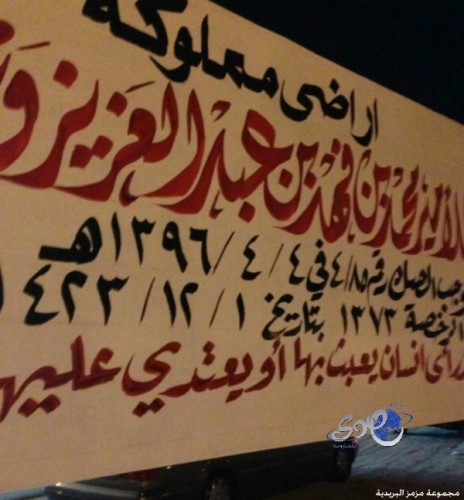 اراضى مملوكة
للأمير محمد بن فهد بن عبدالعزيز و
الصك رقم ٤/٨٥ في ٤/٤/١٣٩٦هـ
الرخصة ١٣٧٣ بتاريخ ١/١٢/١٤٢٣
انسان يعبث بها أو يعتدي عليها
صدى
مجموعة مزمز البريدية